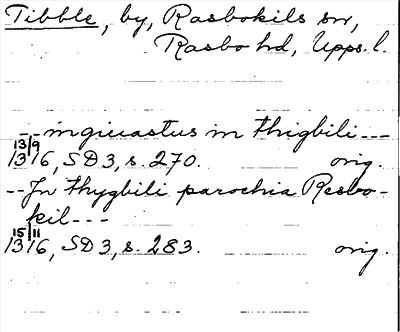 Tibble, by, Rasbokils sn,
Rasbo hd, Upps. l.
- - in giuastus in thigbili - - -
13/9
1316, SD 3, s. 270. orig.
- - In thygbili parochia Resbo-
kil - - -
15/11
1316, SD 3, s. 283. orig.